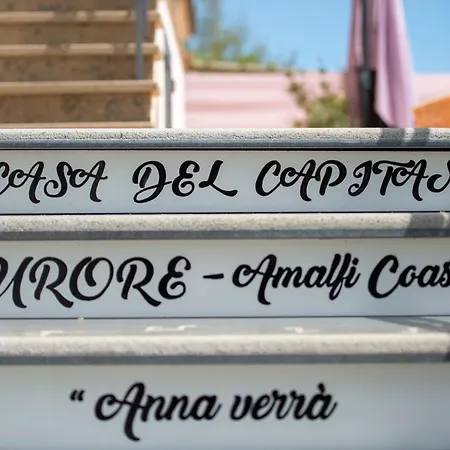 CASA DEL CAPITAN
URORE - Amalfi Coas
" Anna verrà